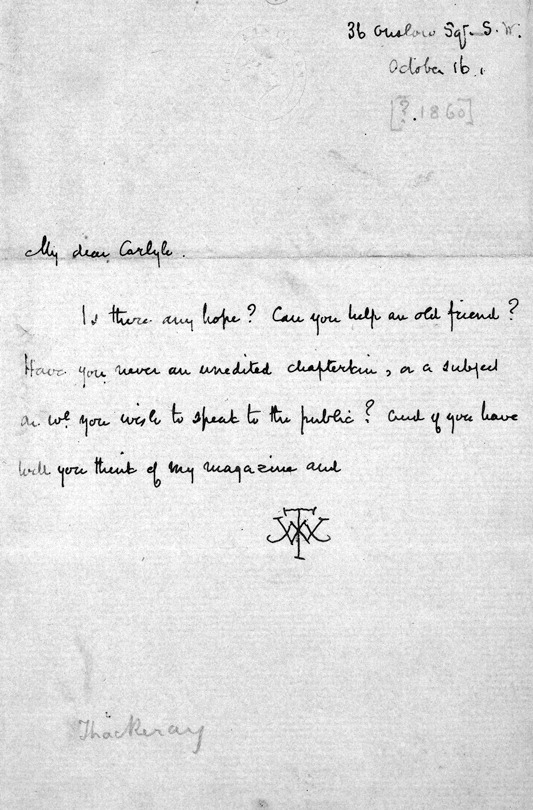 36 Onslow Sqr. S.W.
October 16.
[?.1860]
My dear Carlyle.
Is there any hope? Can you help an old friend?
Have you never an unedited chapterkin, or a subject
on wh. you wish to speak to the public? And if you have
will you think of my magazine and
WMT
Thackeray